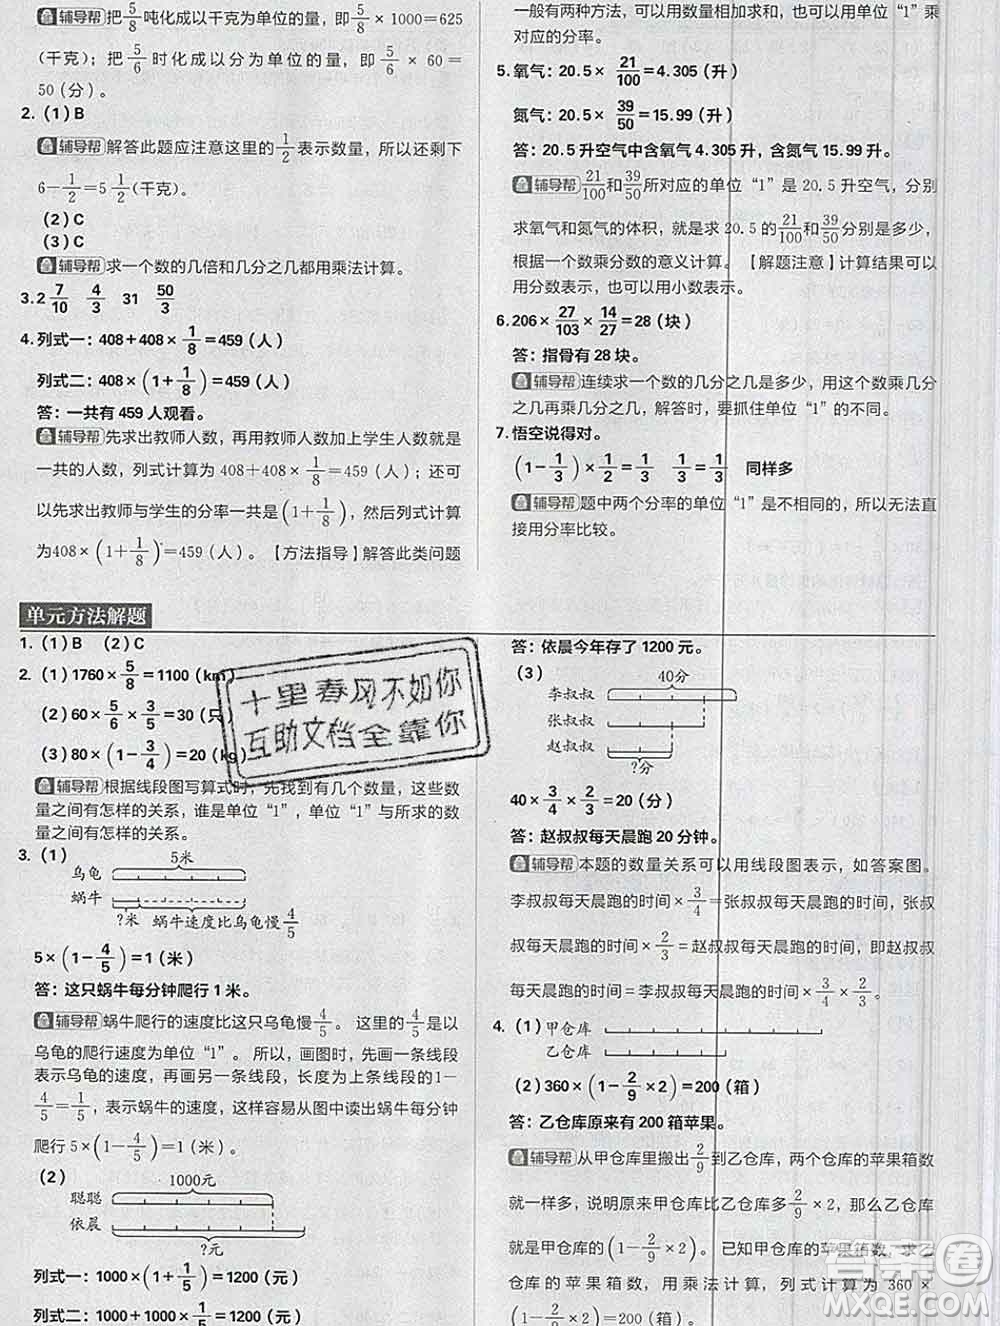 辅导帮 5/8吨化成以千克为单位的量，即5/8×1000=625
(千克)；把5/6时化成以分为单位的量，即5/6×60=
50(分)。
2.(1)B
辅导帮 解答此题应注意这里的1/2表示数量，所以还剩下
6-1/2=5 1/2(千克)。
(2)C
(3)C
辅导帮 求一个数的几倍和几分之几都用乘法计算。
3. 2 7/10 4/3 31 50/3
4. 列式一：408+408×1/8=459(人)
列式二：408×(1+1/8)=459(人)
答：一共有459人观看。
辅导帮 先求出教师人数，再用教师人数加上学生人数就是
一共的人数，列式计算为408+408×1/8=459(人)；还可
以先求出教师与学生的分率一共是(1+1/8)，然后列式计算
为408×(1+1/8)=459(人)。【方法指导】解答此类问题
一般有两种方法，可以用数量相加求和，也可以用单位“1”乘
对应的分率。
5. 氧气：20.5×21/100=4.305(升)
氮气：20.5×39/50=15.99(升)
答：20.5升空气中含氧气4.305升，含氮气15.99升。
辅导帮 21/100和39/50所对应的单位“1”是20.5升空气，分别
求氧气和氮气的体积，就是求20.5的21/100和39/50分别是多少，
根据一个数乘分数的意义计算。【解题注意】计算结果可以
用分数表示，也可以用小数表示。
6. 206×27/103×14/27=28(块)
答：指骨有28块。
辅导帮 连续求一个数的几分之几是多少，用这个数乘几分
之几再乘几分之几，解答时，要抓住单位“1”的不同。
7. 悟空说得对。
(1-1/3)×1/2=1/3 1/3=1/3 同样多
辅导帮 题中两个分率的单位“1”是不相同的，所以无法直
接用分率比较。
单元方法解题
1.(1)B (2)C
2.(1)1760×5/8=1100(km)
(2)60×5/6×3/5=30(只)
(3)80×(1-3/4)=20(kg)
辅导帮 根据线段图写算式时，先找到有几个数量，这些数
量之间有怎样的关系，谁是单位“1”，单位“1”与所求的数
量之间有怎样的关系。
3.(1)
5米
乌龟
蜗牛
?米 蜗牛速度比乌龟慢4/5
5×(1-4/5)=1(米)
答：这只蜗牛每分钟爬行1米。
辅导帮 蜗牛爬行的速度比这只乌龟慢4/5。这里的4/5是以
乌龟的爬行速度为单位“1”。所以，画图时，先画一条线段
表示乌龟的速度，再画一条线段，长度为上条线段的1-
4/5=1/5，表示蜗牛的速度，这样容易从图中读出蜗牛每分钟
爬行5×(1-4/5)=1(米)。
(2)
1000元
聪聪
依晨
?元
列式一：1000×(1+1/5)=1200(元)
列式二：1000+1000×1/5=1200(元)
答：依晨今年存了1200元。
(3)
40分
李叔叔
张叔叔
赵叔叔
?分
40×3/4×2/3=20(分)
答：赵叔叔每天晨跑20分钟。
辅导帮 本题的数量关系可以用线段图表示，如答案图。
李叔叔每天晨跑的时间×3/4=张叔叔每天晨跑的时间，张叔
叔每天晨跑的时间×2/3=赵叔叔每天晨跑的时间，即赵叔叔
每天晨跑的时间=李叔叔每天晨跑的时间×3/4×2/3。
4.(1)甲仓库
乙仓库
(2)360×(1-2/9×2)=200(箱)
答：乙仓库原来有200箱苹果。
辅导帮 从甲仓库里搬出2/9到乙仓库，两个仓库的苹果箱数
就一样多，说明原来甲仓库比乙仓库多2/9×2，那么乙仓库
就是甲仓库的(1-2/9×2)。已知甲仓库的苹果箱数，求乙
仓库的苹果箱数，用乘法计算，列式计算为360×
(1-2/9×2)=200(箱)
十里春风不如你
互助文档全靠你
答案圈
MXQE.COM